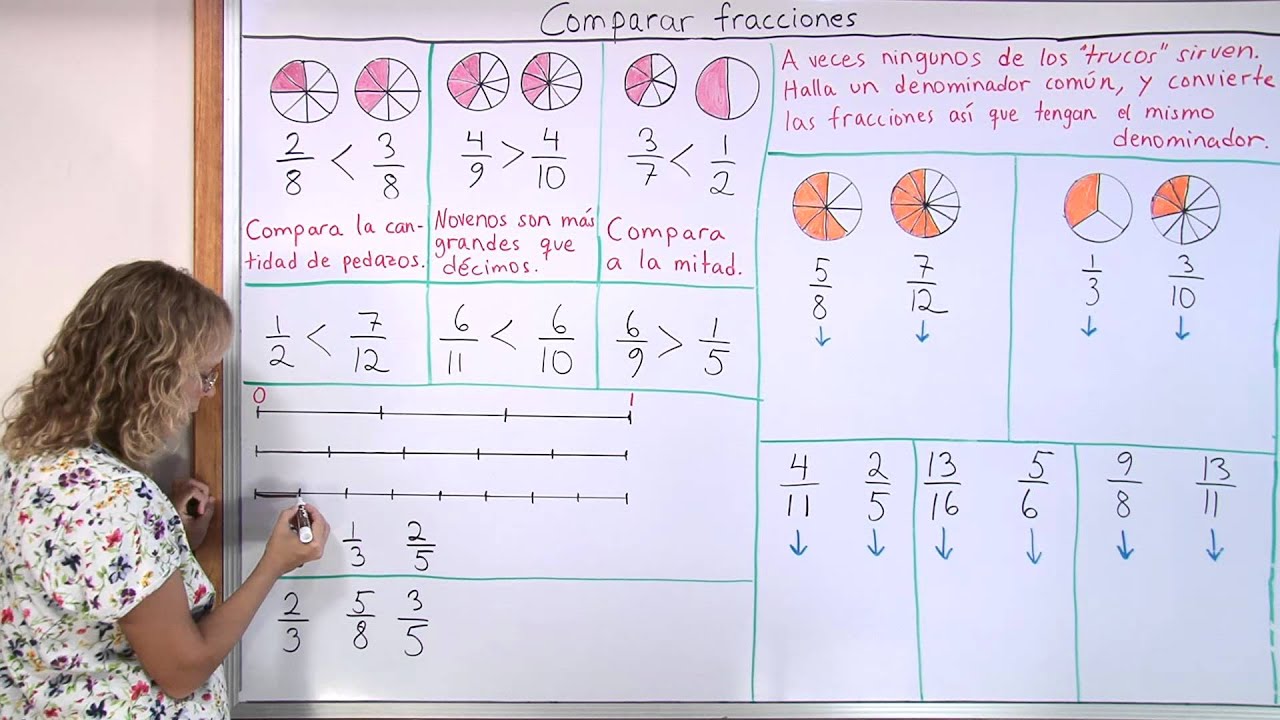 Comparar fracciones
2/8 < 3/8
Compara la can-
tidad de pedazos.
4/9 > 4/10
Novenos son más
grandes que
décimos.
3/7 < 1/2
Compara
a la mitad.
1/2 < 7/12
6/11 < 6/10
6/9 > 1/5
0 1
1/3 2/5
2/3 5/8 3/5
A veces ningunos de los "trucos" sirven.
Halla un denominador común, y convierte
las fracciones así que tengan el mismo
denominador.
5/8 7/12
↓ ↓
1/3 3/10
↓ ↓
4/11 2/5
↓ ↓
13/16 5/6
↓ ↓
9/8 13/11
↓ ↓